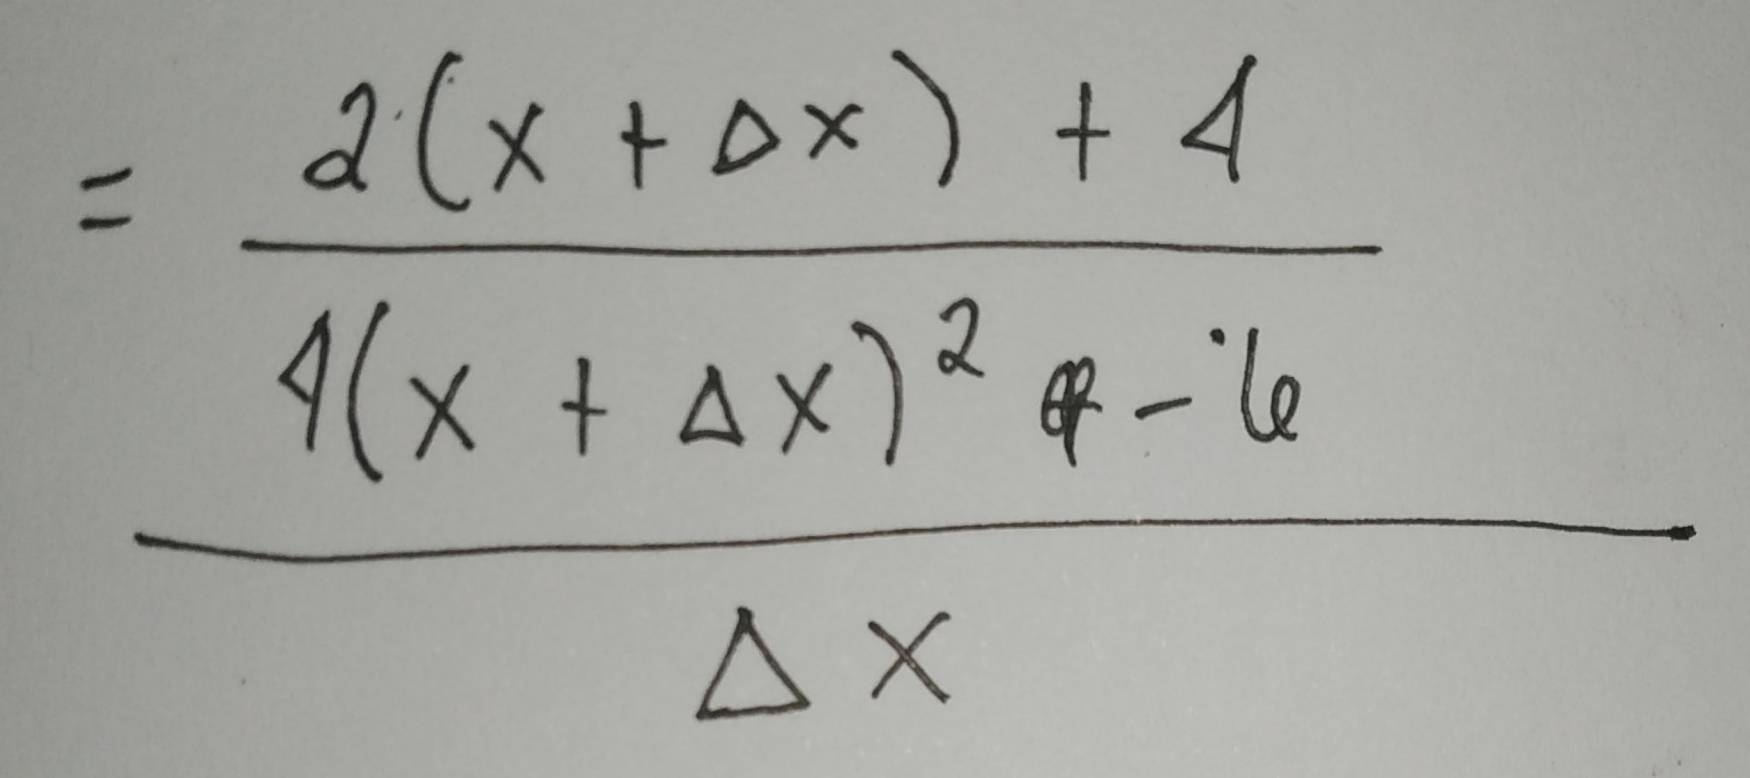 = 2(x + Δx) + 4
4(x + Δx)² - 6
Δx